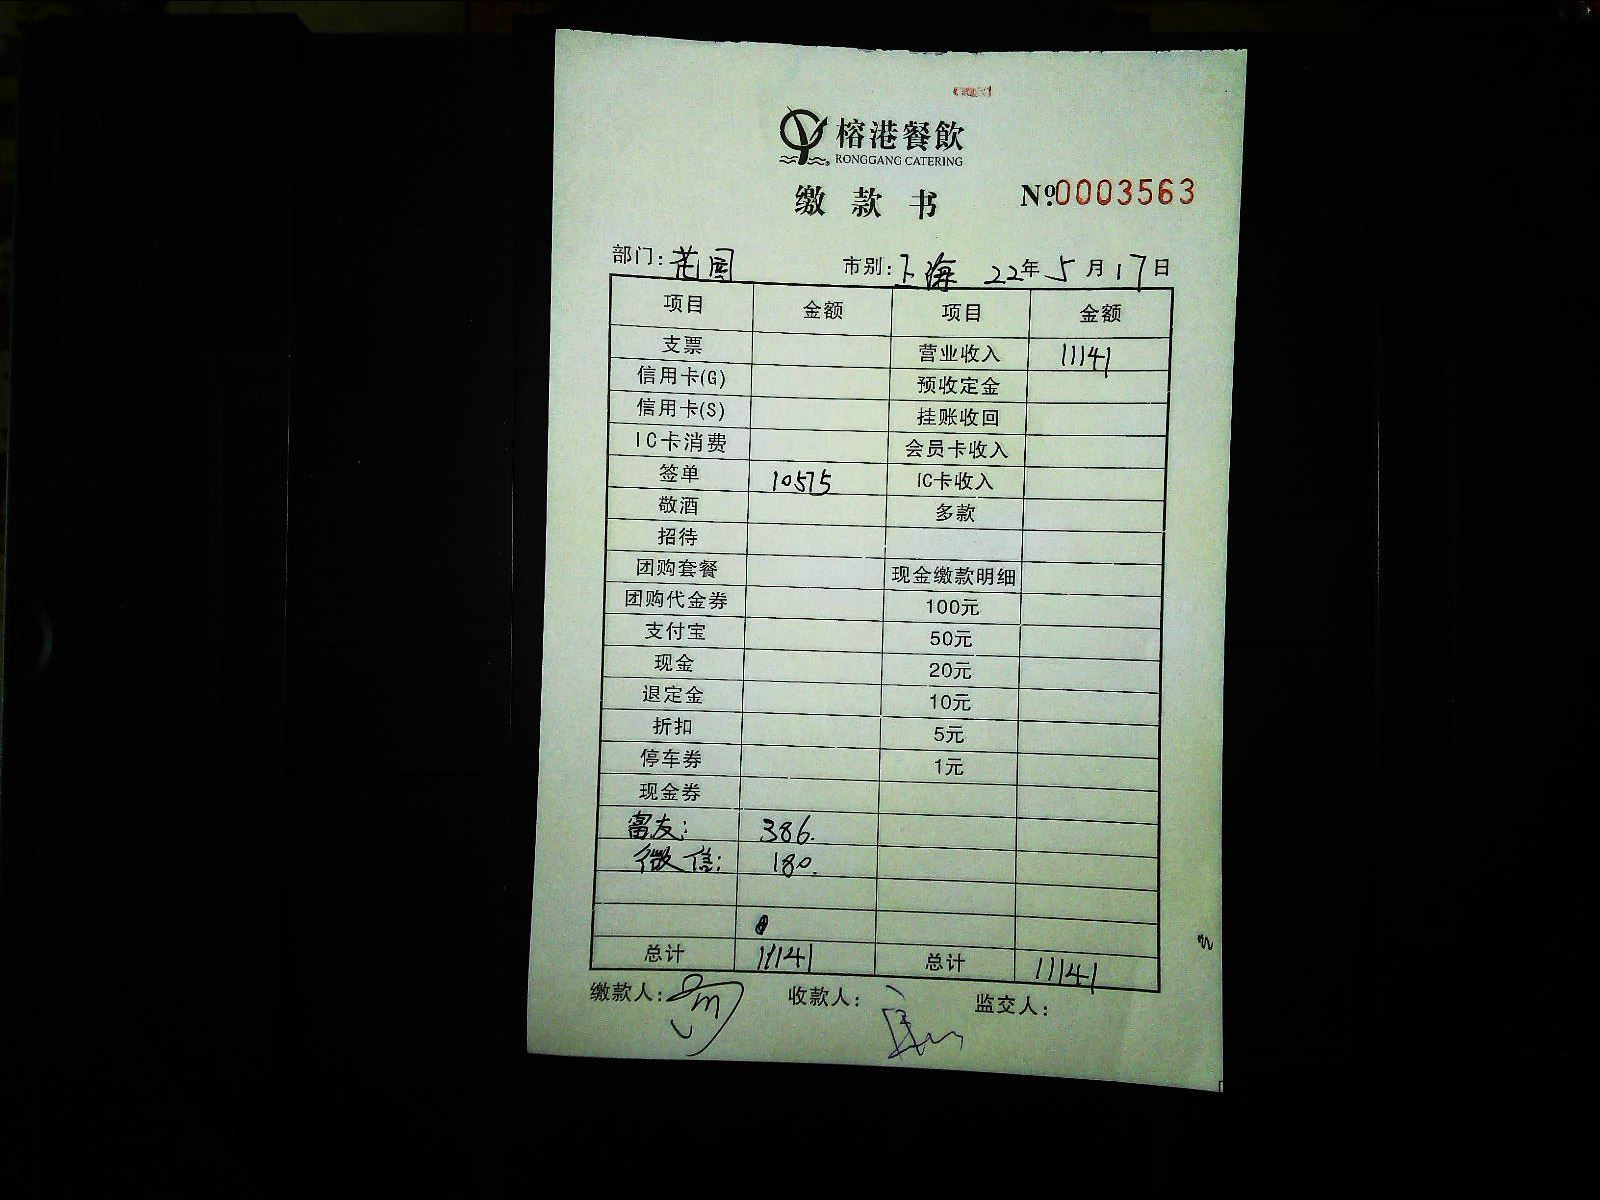 榕港餐飲
RONGGANG CATERING
缴款书 №0003563
部门：花園 市别：上海 22年5月17日
项目 金额 项目 金额
支票 营业收入 11141
信用卡(G) 预收定金
信用卡(S) 挂账收回
IC卡消费 会员卡收入
签单 10575 IC卡收入
敬酒 多款
招待
团购套餐 现金缴款明细
团购代金券 100元
支付宝 50元
现金 20元
退定金 10元
折扣 5元
停车券 1元
现金券
富友： 386.
微信： 180.
总计 11141 总计 11141
缴款人： 收款人： 监交人：